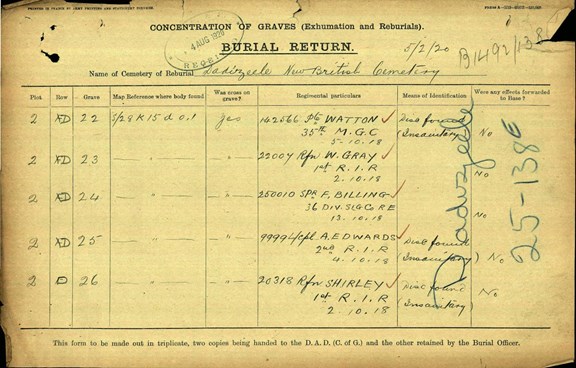 PRINTED IN FRANCE BY ARMY PRINTING AND STATIONERY SERVICES.
CONCENTRATION OF GRAVES (Exhumation and Reburials).
4 AUG 1920
BURIAL RETURN.
5/2/20
Name of Cemetery of Reburial Dadizeele New British Cemetery
Plot Row Grave Map Reference where body found Was cross on grave? Regimental particulars Means of Identification Were any effects forwarded to Base?
2 D 22 S/28 K 15 d 0.1 yes 142566 Pte WATTON Disc found
35th M.G.C (Insanitary) No
5-10.18
2 D 23 — " — " 22007 Rfn W. GRAY
1st R.I.R No
2.10.18
2 D 24 — " — " 250010 SPR F. BILLING
36 DIV. SIG Co RE No
13.10.18
2 D 25 — " — " 9999 L/Cpl A. EDWARDS Disc found
2nd R.I.R (Insanitary) No
4.10.18
2 D 26 — " — " 20318 Rfn SHIRLEY Disc found
1st R.I.R (Insanitary) No
2.10.18
Dadizeele
25-138E
This form to be made out in triplicate, two copies being handed to the D.A.D. (C. of G.) and the other retained by the Burial Officer.